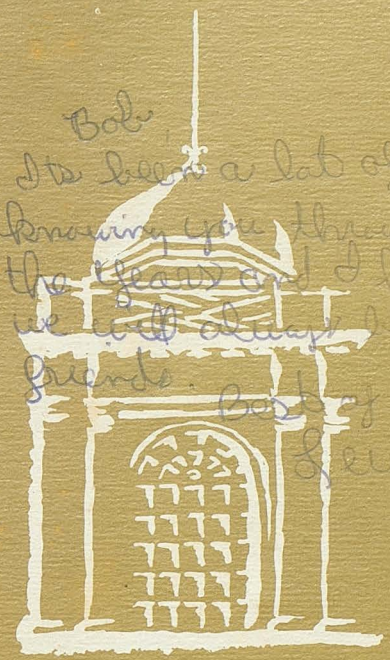 Bob,
Its been a lot of
knowing you thru
the years and I
we will always
friends.
Best of